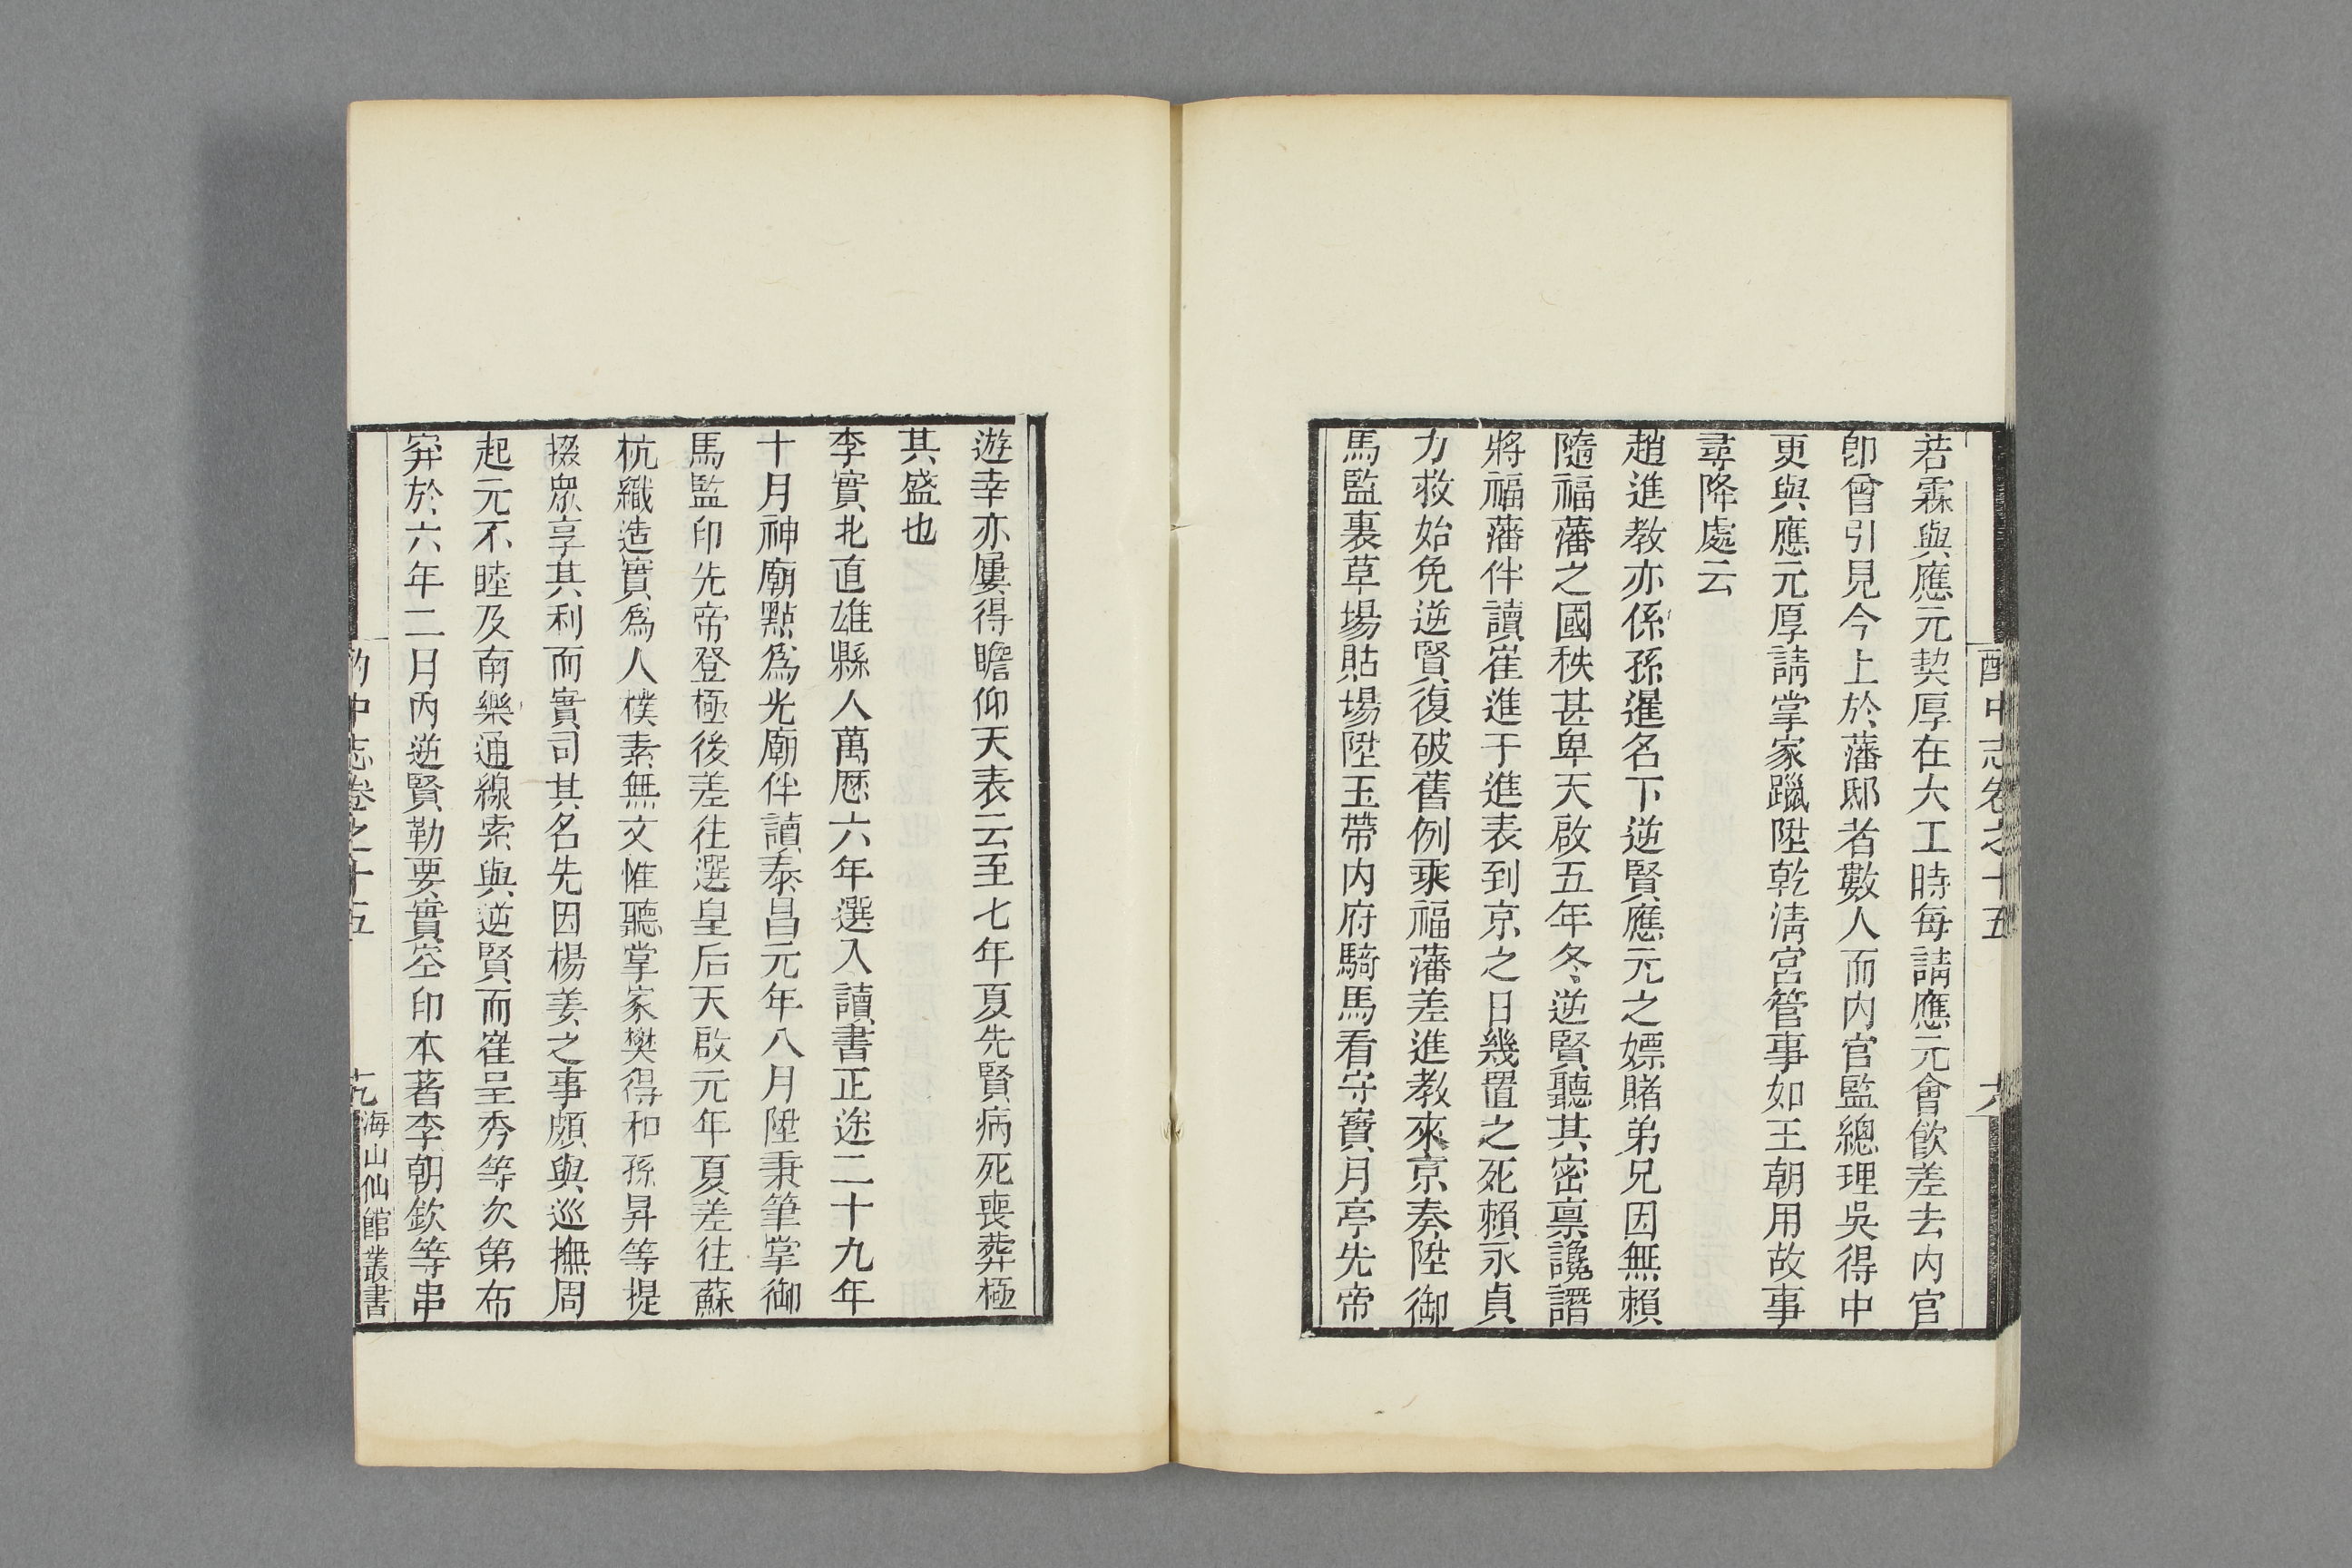 酌中志卷之十五
若霖與應元契厚在大工時每請應元會飲差去内官
卽曾引見今上於藩邸者數人而内官監總理吳得中
更與應元厚請掌家躐陞乾淸宮管事如王朝用故事
尋降處云
趙進教亦係孫暹名下逆賢應元之嫖賭弟兄因無賴
隨福藩之國秩甚卑天啟五年冬逆賢聽其密禀讒譖
將福藩伴讀崔進于進表到京之日幾置之死賴永貞
力救始免逆賢復破舊例乘福藩差進教來京奏陞御
馬監裏草場貼場陞玉帶内府騎馬看守寳月亭先帝
遊幸亦屢得瞻仰天表云至七年夏先賢病死喪葬極
其盛也
李實北直雄縣人萬厯六年選入讀書正途二十九年
十月神廟點爲光廟伴讀泰昌元年八月陞秉筆掌御
馬監印先帝登極後差往選皇后天啟元年夏差往蘇
杭織造實爲人樸素無文惟聽掌家樊得和孫昇等提
掇衆享其利而實司其名先因楊姜之事頗與巡撫周
起元不睦及南樂通線索與逆賢而崔呈秀等次第布
穽於六年二月内逆賢勒要實空印本著李朝欽等串
酌中志卷之十五
十九
海山仙館叢書